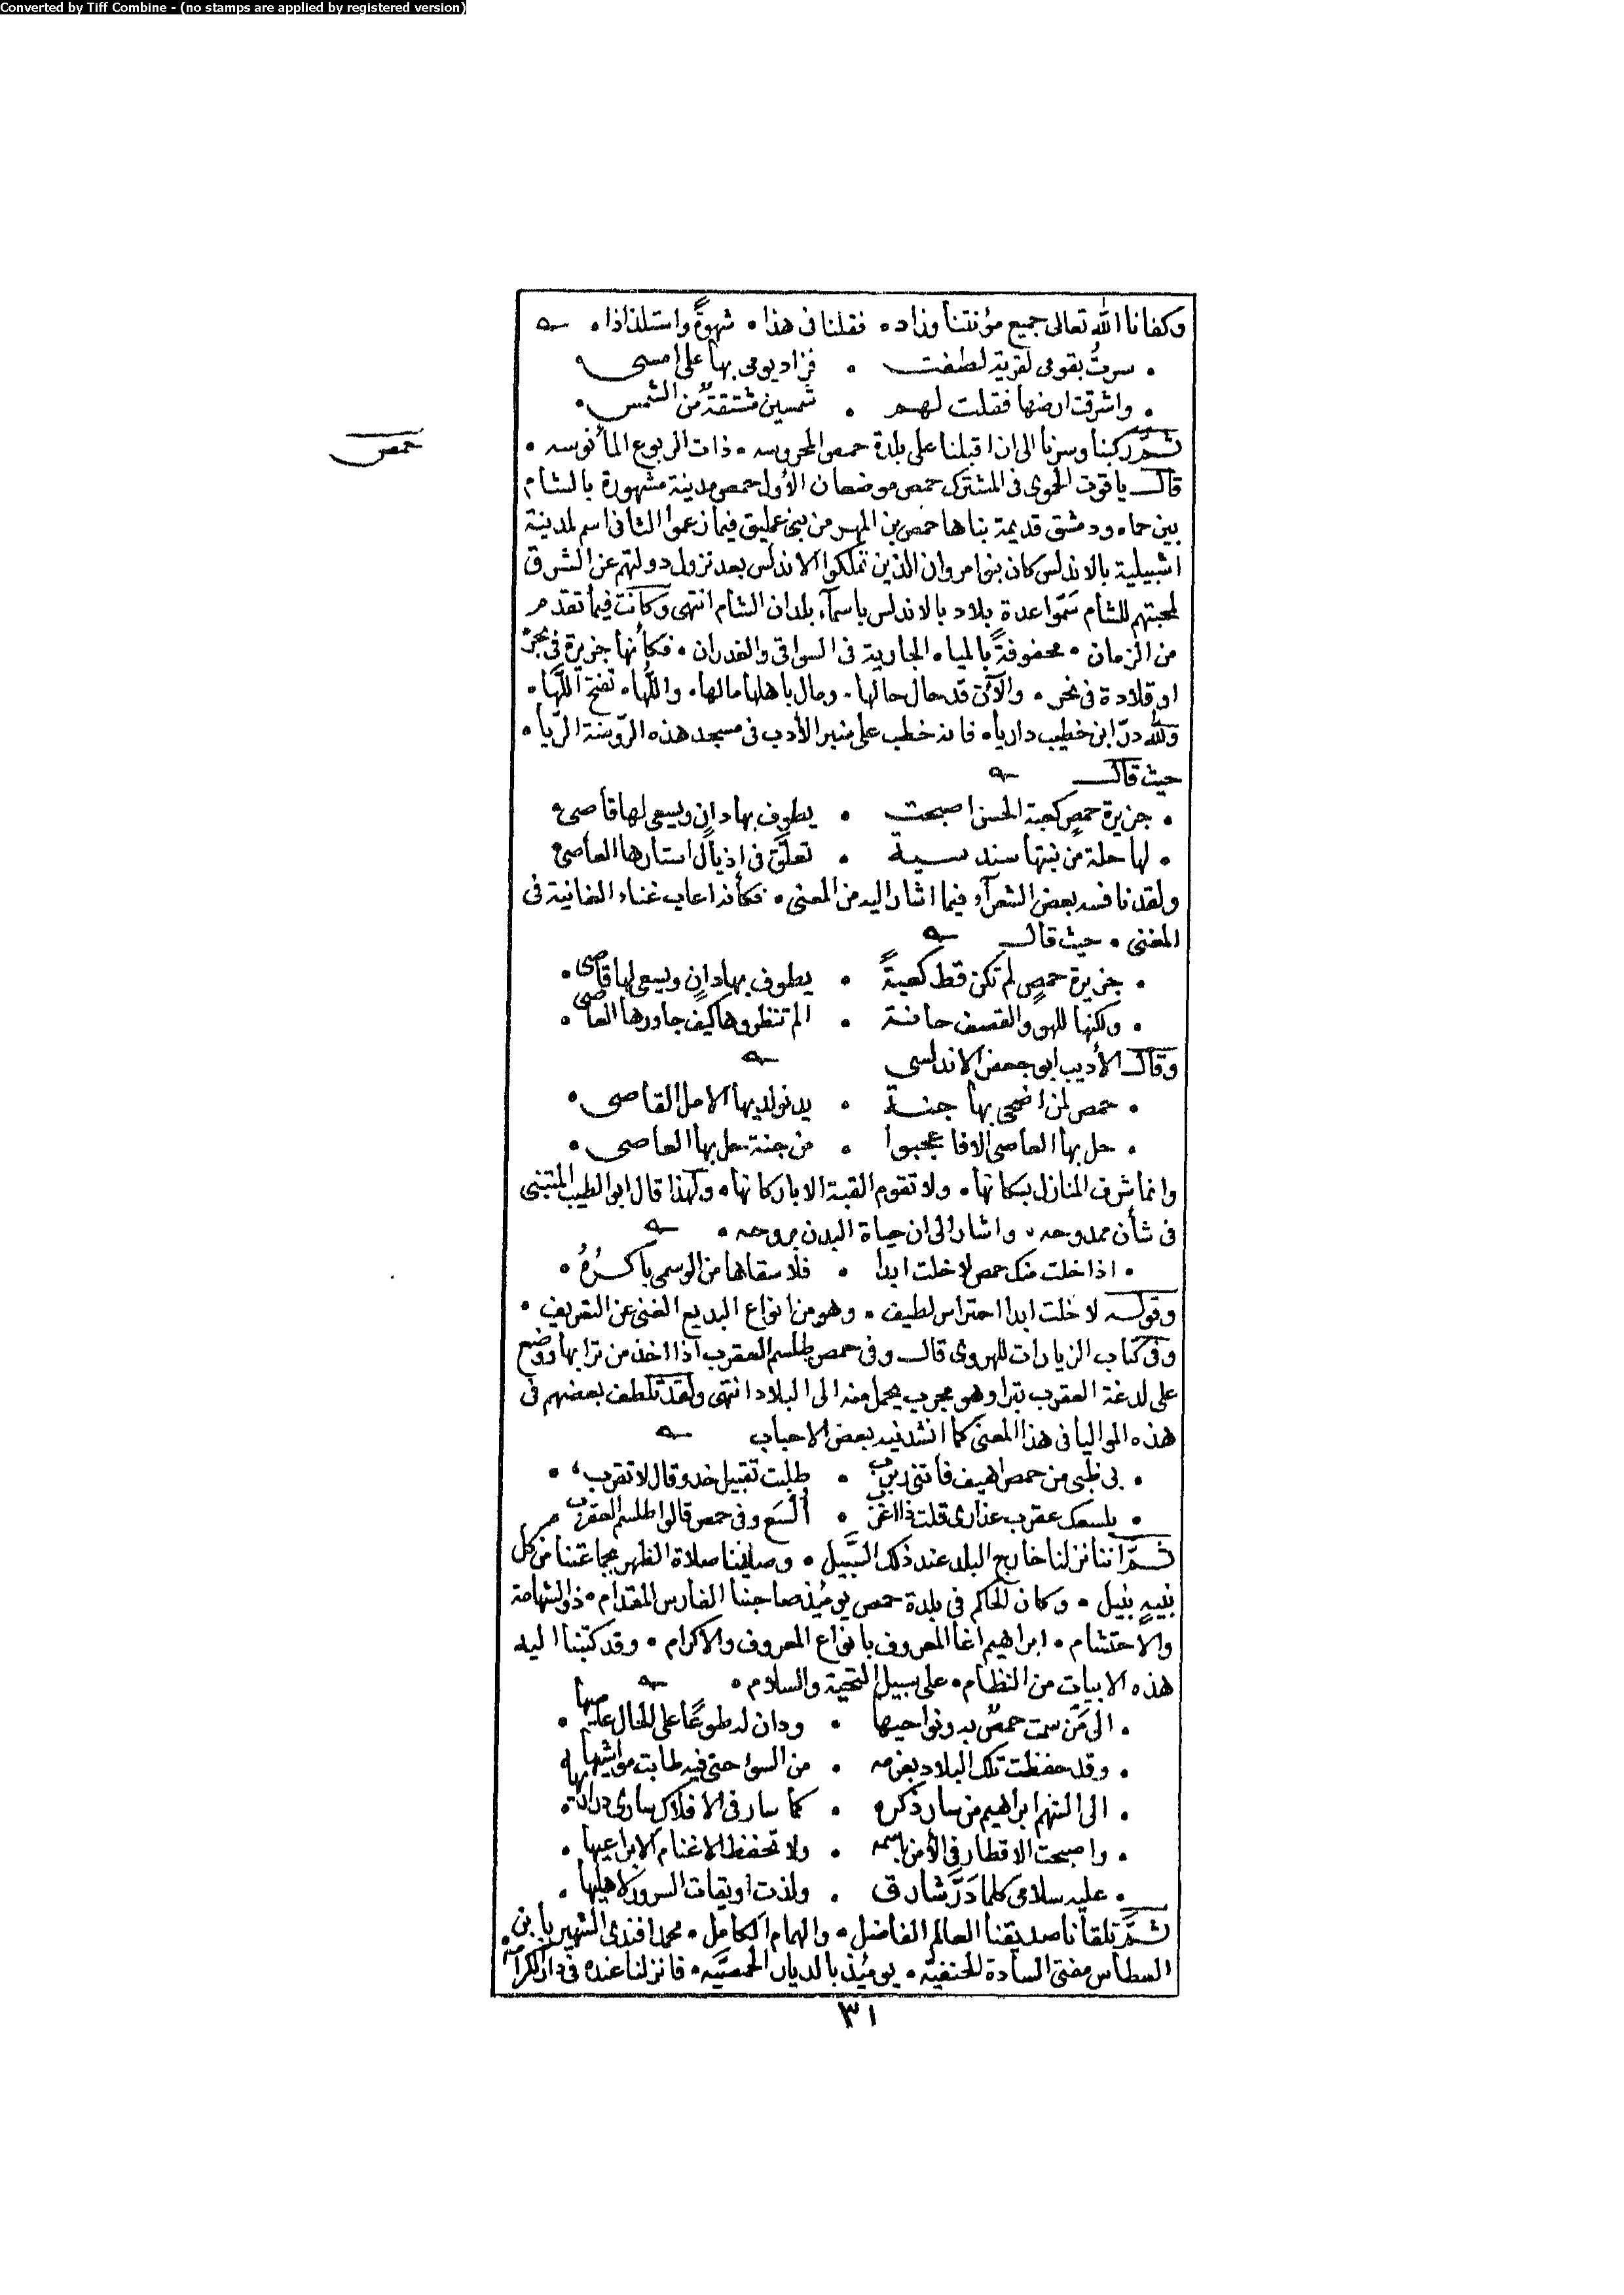 Converted by Tiff Combine - (no stamps are applied by registered version)
وكفانا الله تعالى جميع مؤنتنا وزاد • فقلنا في هذا • شهوةً واستلذاذا •
• سريتُ بقومى لقرية لطفت • فزاد يومى بها على امسى
• واشرقت ارضها فقلت لهم • شمسين مشتقةٌ من الشمس •
ثمّ ركبنا وسرنا الى ان اقبلنا على بلدة حمص المحروسه • ذات الربوع المأنوسه •
حمص
قال ياقوت الحموى فى المشترك حمص موضعان الأول حمص مدينة مشهورة بالشام
بين حماه ودمشق قديمة بناها حمص بن المهر من بنى عمليق فيما زعموا الثانى اسم لمدينة
اشبيلية بالاندلس كان بنوا مروان الذين تملكوا الاندلس بعد نزول دولتهم عن الشرق
لمحبتهم للشأم سَمّوا عدة بلاد بالاندلس باسمآء بلدان الشام انتهى وكانت فيما تقدم
من الزمان • محفوفةً بالمياه الجارية فى السواقى والغدران • فكأنها جزيرة فى بحر
او قلادة فى نحر • والآن قد حال حالها • ومال باهلها مالها • واللُّها • تفتح اللَّها •
ولله درّ ابن خطيب داريا • فانه خطب على منبر الأدب فى مسجد هذه الرّوضة الرّيا •
حيث قال
• جزيرة حمصٍ كعبة الحسن اصبحت • يطوف بها دانٍ ويسعى لها قاصى •
• لها حلة من نبتها سندسية • تعلّق فى اذيال استارها العاصى •
ولقد نافسه بعض الشعرآء فيما اشار اليه من المعنى • فكأنه اعاب غناء الغانية فى
المغنى • حيث قال
• جزيرة حمصٍ لم تكن قط كعبةً • يطوف بها دانٍ ويسعى لها قاصى •
• ولكنها للهو والقصف حانة • الم تنظروها كيف جاورها العاصى •
وقال الأديب ابو جعفر الاندلسى
• حمص لمن اضحى بها جنة • يدنو لديها الامل القاصى •
• حل بها العاصى الا فاعجبوا • من جنة حل بها العاصى •
وانما شرف المنازل بسكانها • ولا تقوم القبة الا باركانها • ولهذا قال ابو الطيب المتنبى
فى شأن ممدوحه • واشار الى ان حياة البدن بروحه •
• اذا خلت منك حمص لا خلت ابدا • فلا سقاها من الوسمى باكرُهُ •
وقوله لا خلت ابدا احتراس لطيف • وهو من انواع البديع الغنى عن التعريف •
وفى كتاب الزيارات للهروى قال وفى حمص طلسم العقرب اذا اخذ من ترابها ووضع
على لدغة العقرب تبرا وهو مجرب يحمل منه الى البلاد انتهى ولقد تلطف بعضهم فى
هذه المواليا فى هذا المعنى كما انشدنيه بعض الاحباب
• بى ظبى من حمص اهيف فاتنى • طلبت تقبيل خدو قال لا تقرب •
• يلسعك عقرب عذارى قلت ذا اغرب • ألسَع وفى حمص قالوا طلسم العقرب
ثمّ اننا نزلنا خارج البلد عند ذلك السَّبيل • وصلينا صلاة الظهر بجماعتنا من كل
نبيهٍ نبيل • وكان الحاكم فى بلدة حمص يومئذ صاحبنا الفارس المقدام • ذو الشهامة
والاحتشام • ابراهيم اغا المعروف بانواع المعروف والاكرام • وقد كتبنا اليه
هذه الابيات من النظام • على سبيل التحية والسلام •
• الى مَن سمت حمصٌ به ونواحيها • ودان له طوعًا على الحال عاصيها •
• وقد حفظت تلك البلاد بعزمه • من السوء حتى فيه طابت مواشيها
• الى الشهم ابراهيم من سار ذكره • كما سار فى الافلاك سارى دراريها •
• واصبحت الاقطار فى الأمن باسمه • ولا تحفظ الاغنام الا براعيها •
• عليه سلامى كلما ذَرَّ شارق • ولذت اويقات السرور لاهليها •
ثمّ تلقانا صديقنا العالم الفاضل • والهمام الكامل • محمد افندى الشهير بابن
السطاس مفتى السادة الحنفيّه • يومئذ بالديار الحمصيّه • فانزلنا عنده فى دار الكرامه
٣١